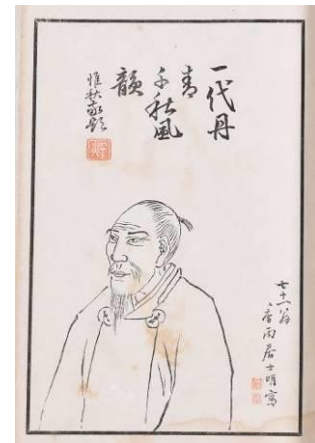 一代丹
青
千秋風
韻
惟秋敬題
翁
香雨居士明寫